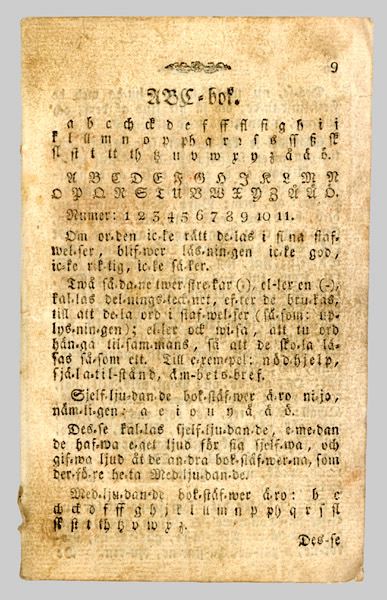 9
ABC-bok.
a b c ch ck d e f ff fl ſi g h i j
k l ll m n o p ph q r ſ s ſſ ß ſk
ſl ſt t tt th tz u v w x y z å ä ö.
A B C D E F G H J K L M N
O P Q R S T U V W X Y Z Å Ä Ö.
Numer: 1 2 3 4 5 6 7 8 9 10 11.
Om or-den ic-ke rätt de-las i ſi na ſtaf-
wel-ſer, blif-wer läs-nin-gen ic-ke god,
ic-ke rik-tig, ic-ke ſä-ker.
Twå ſå-da-ne twer-ſtre-kar (⸗), el-ler en (-),
kal-las del-nings-teck-net, ef-ter de bru-kas,
till att de-la ord i ſtaf-wel-ſer (ſå-ſom: up-
lys-nin-gen); el-ler ock wi-ſa, att tu ord
hän-ga til-ſam-mans, ſå att de ſko-la lä-
ſas ſå-ſom ett. Till e-xem-pel: nöd-hjelp,
ſjä-la-til-ſtånd, äm-bets-bref.
Sjelf-lju-dan-de bok-ſtäf-wer ä-ro ni-jo,
näm-li-gen: a e i o u y å ä ö.
Des-ſe kal-las ſjelf-lju-dan-de, e-me-dan
de haf-wa e-get ljud för ſig ſjelf-wa, och
gif-wa ljud åt de an-dra bok-ſtäf-wer-na, ſom
der-fö-re he-ta Med-lju-dan-de.
Med-lju-dan-de bok-ſtäf-wer ä-ro: b c
ch ck d f ff g h j k l ll m n p ph q r ſ ſl
ſk ſt t th tz v w x z.
Des-ſe